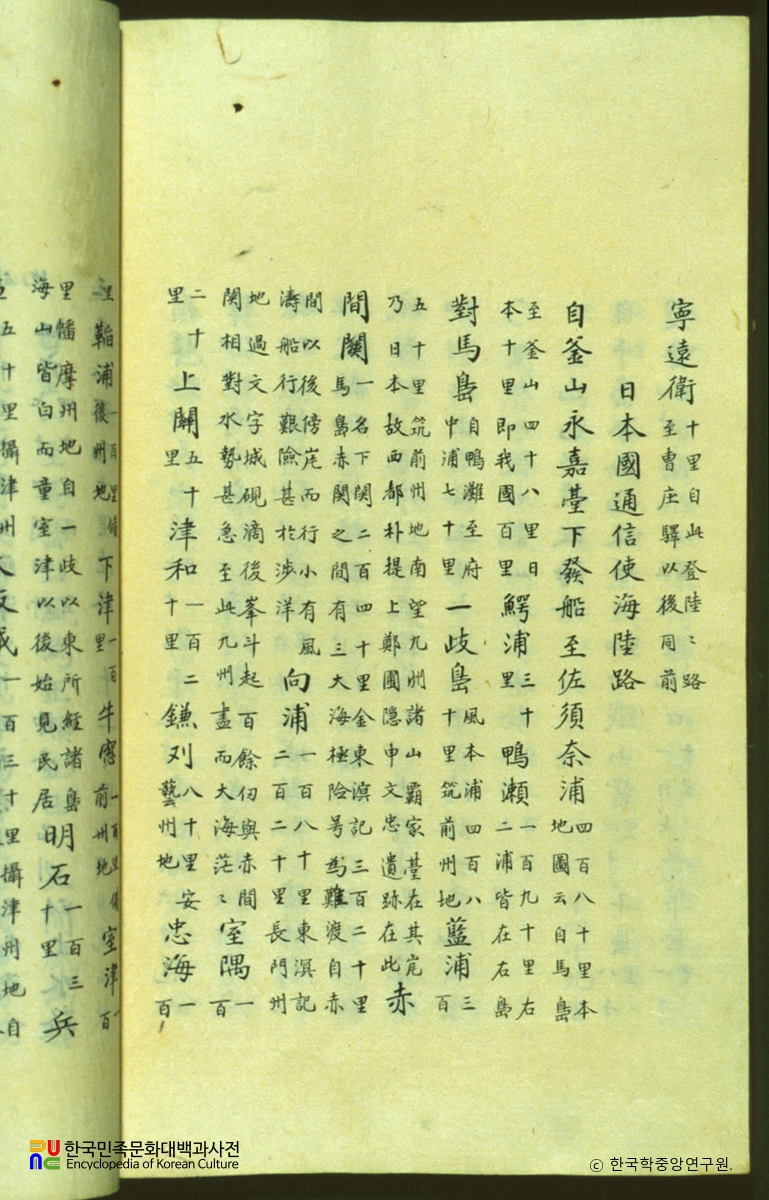 寧遠衛十里自此登陸〻路至曹庄驛以後同前
日本國通信使海陸路
自釜山永嘉臺下發船至佐須奈浦四百八十里本地圖云自馬島
至釜山四十八里日本十里即我國百里鰐浦三十里鴨瀬一百九十里右二浦皆在右島
對馬島自鴨灘至府中浦七十里一歧島風本浦四百八十里筑前州地藍浦三百
五十里筑前州地南望九州諸山霸家臺在其崑乃日本故西都朴提上鄭圃隐申文忠遺跡在此赤
間關一名下関二百四十里金東溟記三百二十里馬島赤関之間有三大海極險号為難渡自赤
間以後傍崖而行小有風濤船行艱險甚於涉洋向浦一百八十里東溟記二百二十里長門州
地過文字城硯滴後峯斗起百餘仞與赤間関相對水勢甚急至此九州盡而大海茫〻室隅一百
二十里上關五十里津和一百二十里鎌刈八十里安藝州地忠海一百
里鞱浦一百里備後州地下津一百里牛窓一百里備前州地室津一百
里幡摩州地自一歧以東所経諸島海山皆白而童室津以後始見民居明石一百三十里兵
五十里攝津州一百三十里攝津州地自
한국민족문화대백과사전
Encyclopedia of Korean Culture
© 한국학중앙연구원.